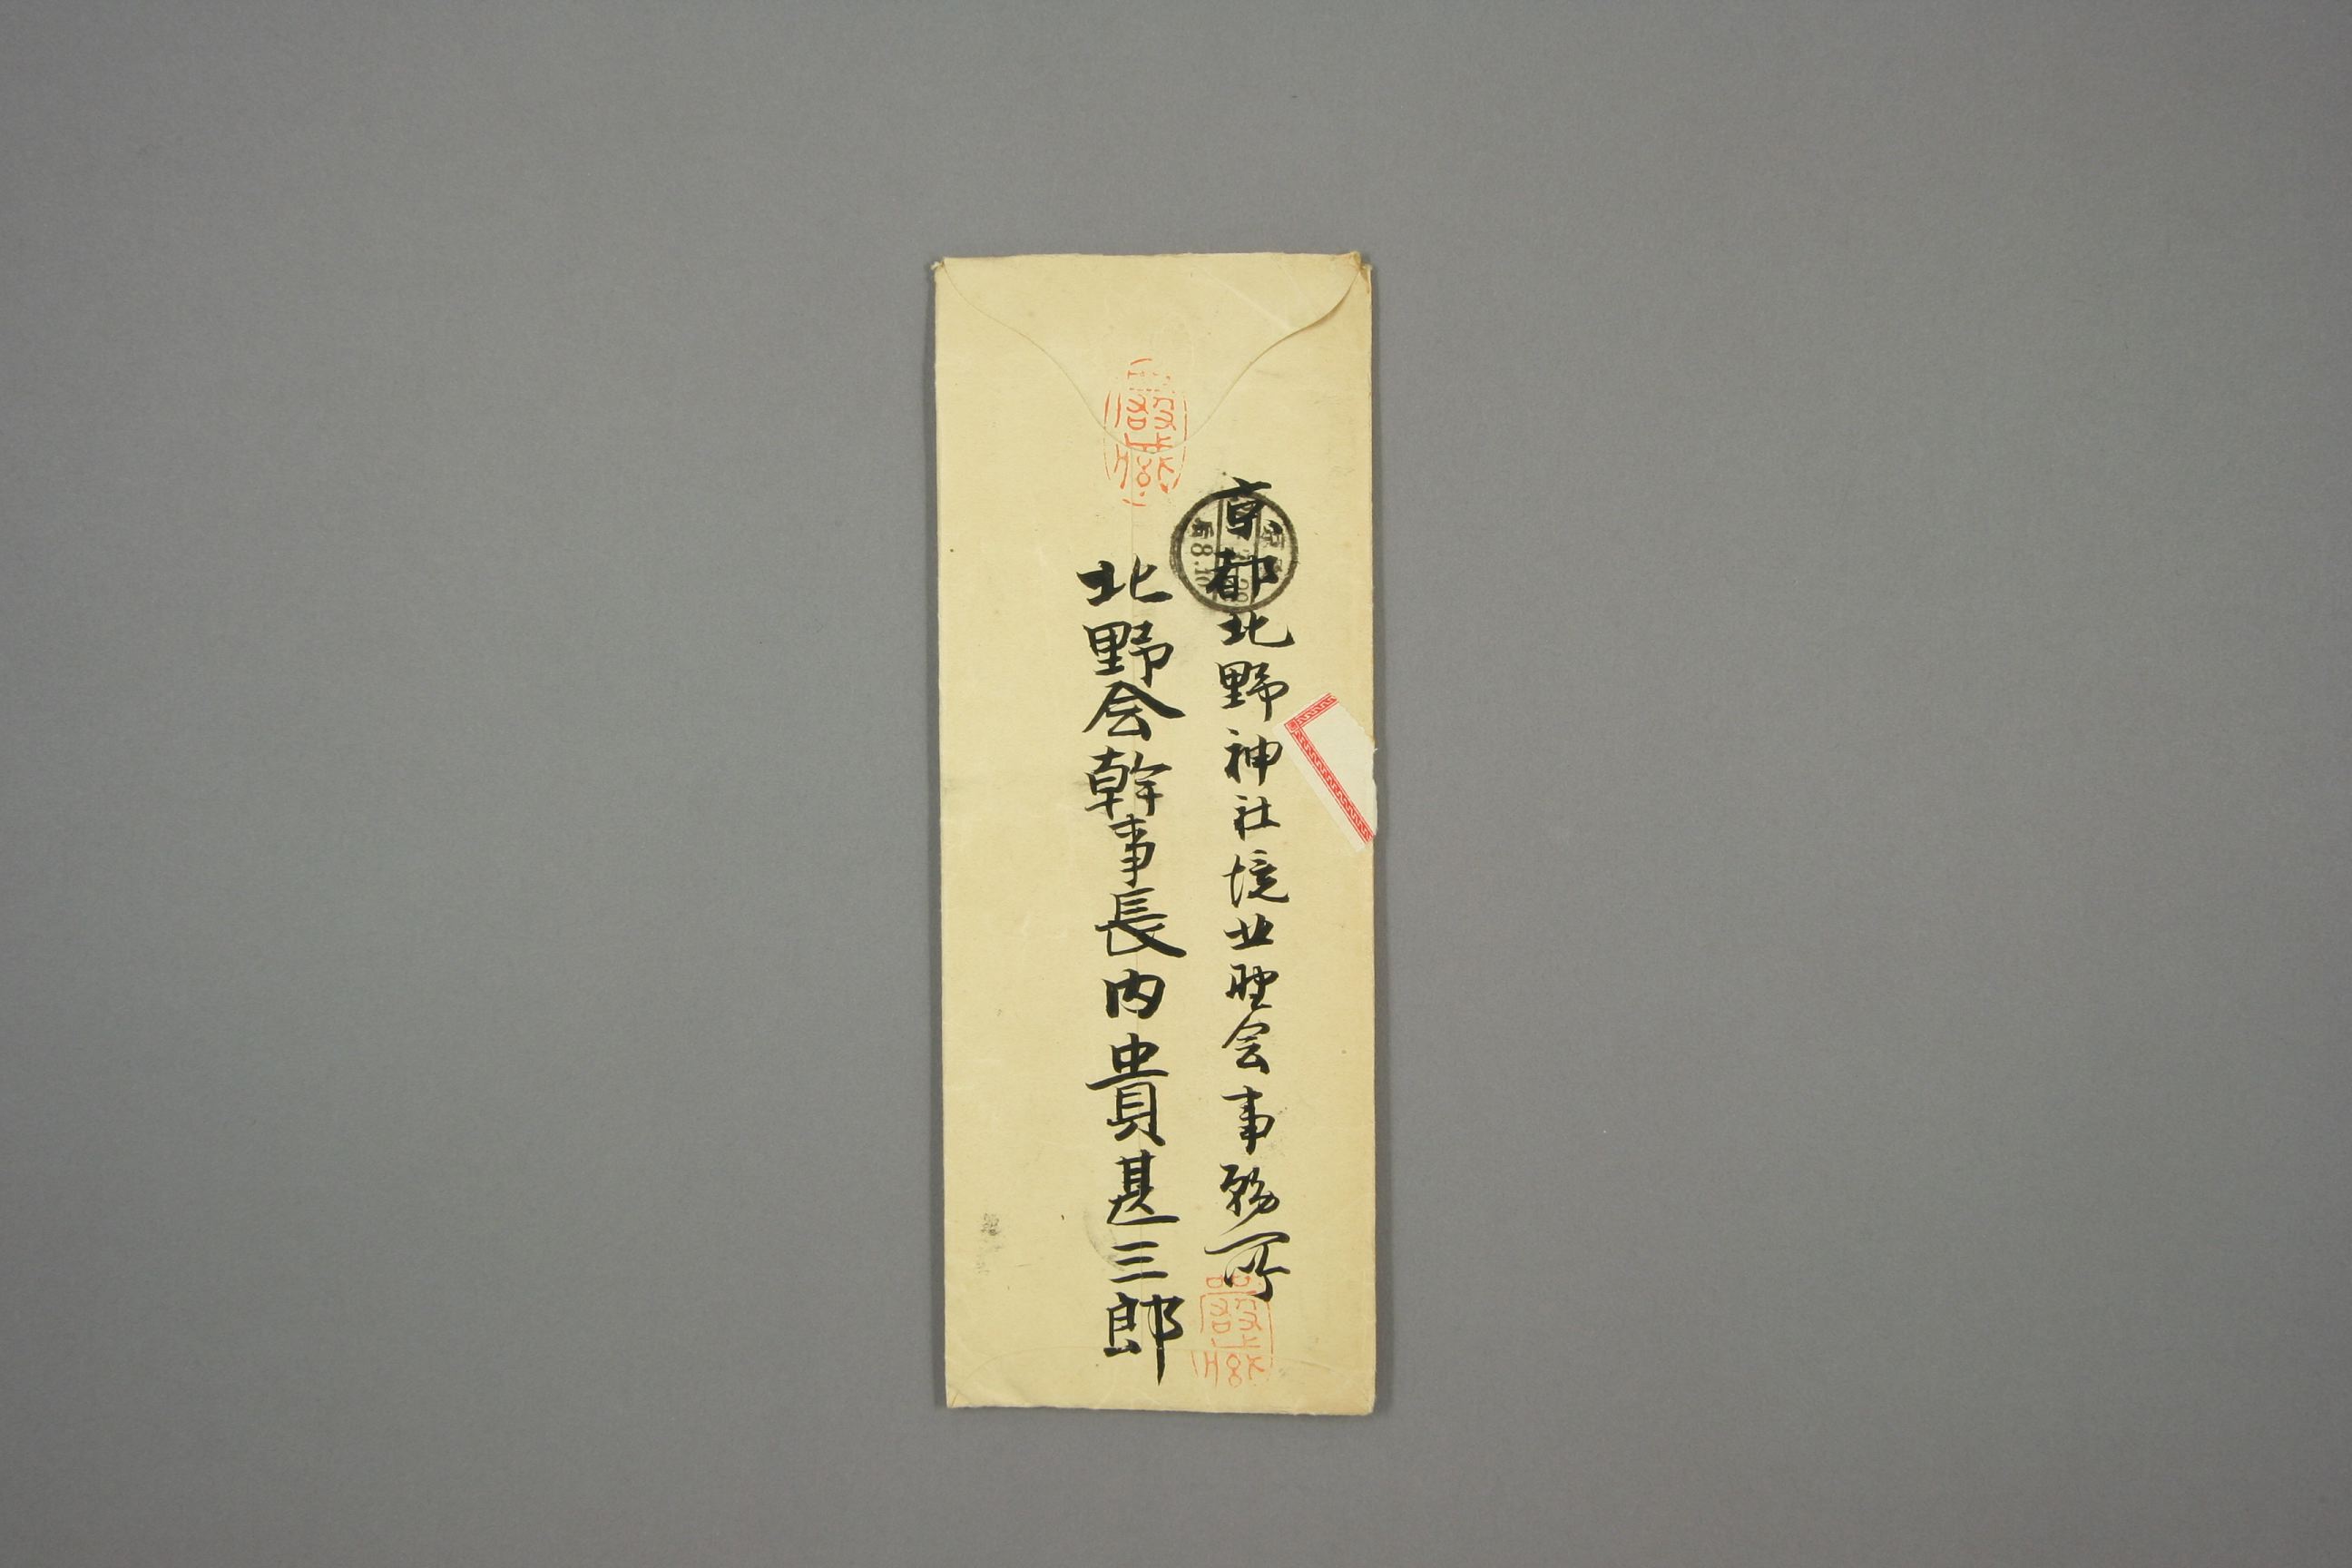 京都北野神社境北野会事務所
北野会幹事長内貴甚三郎
后8.10